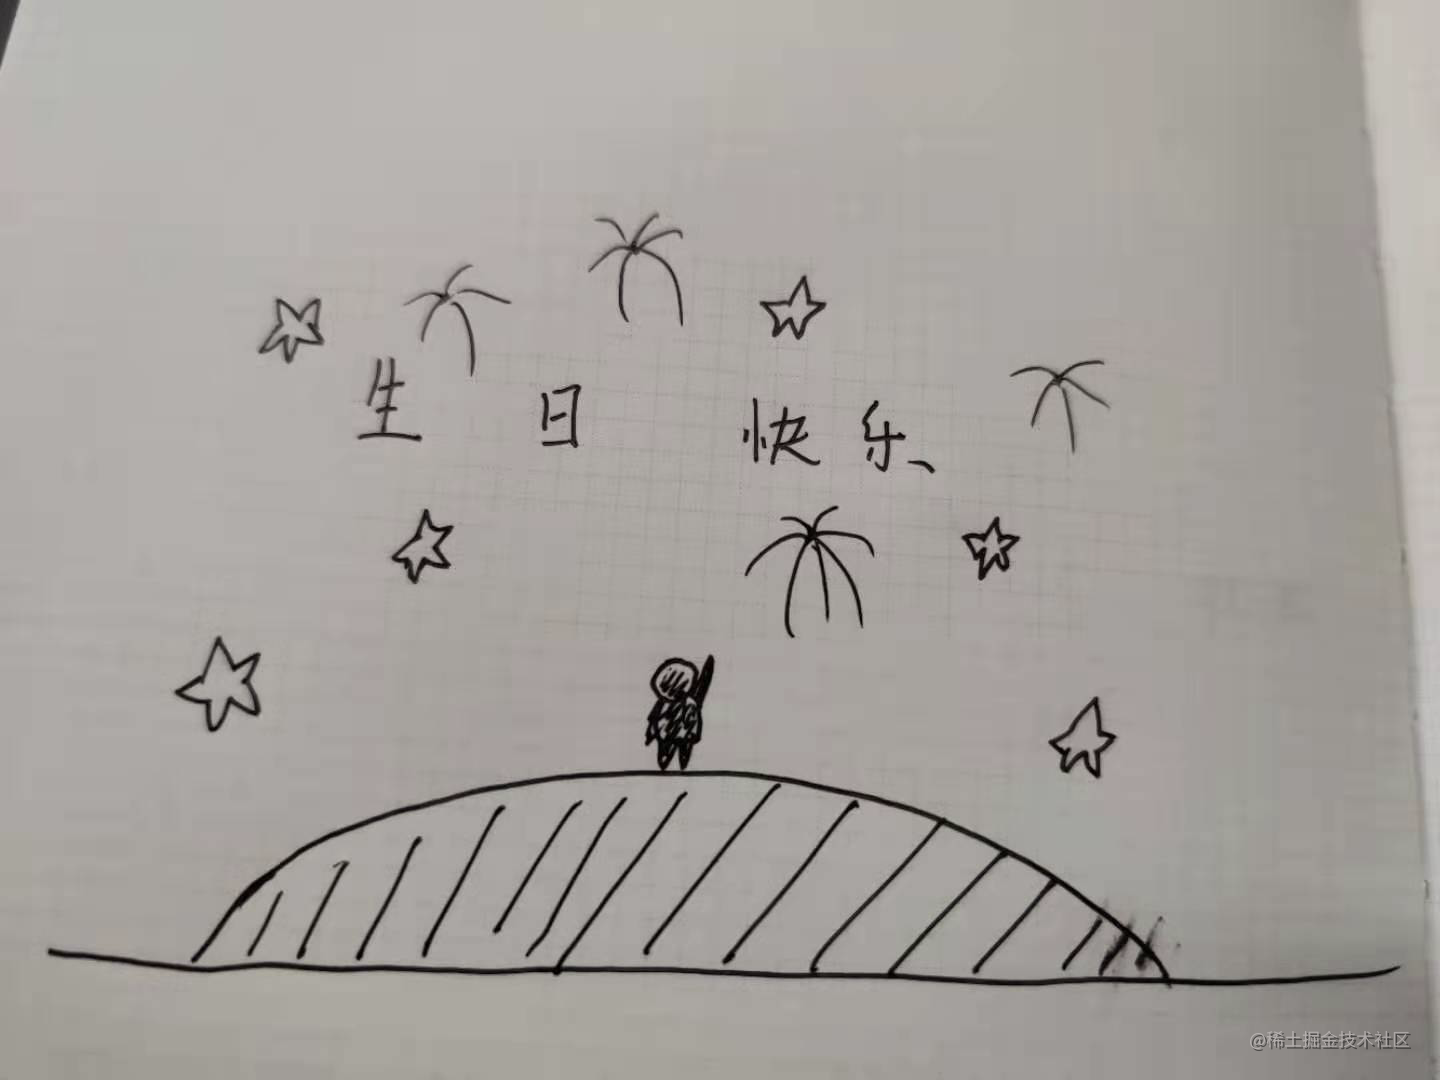 生日快乐
@稀土掘金技术社区